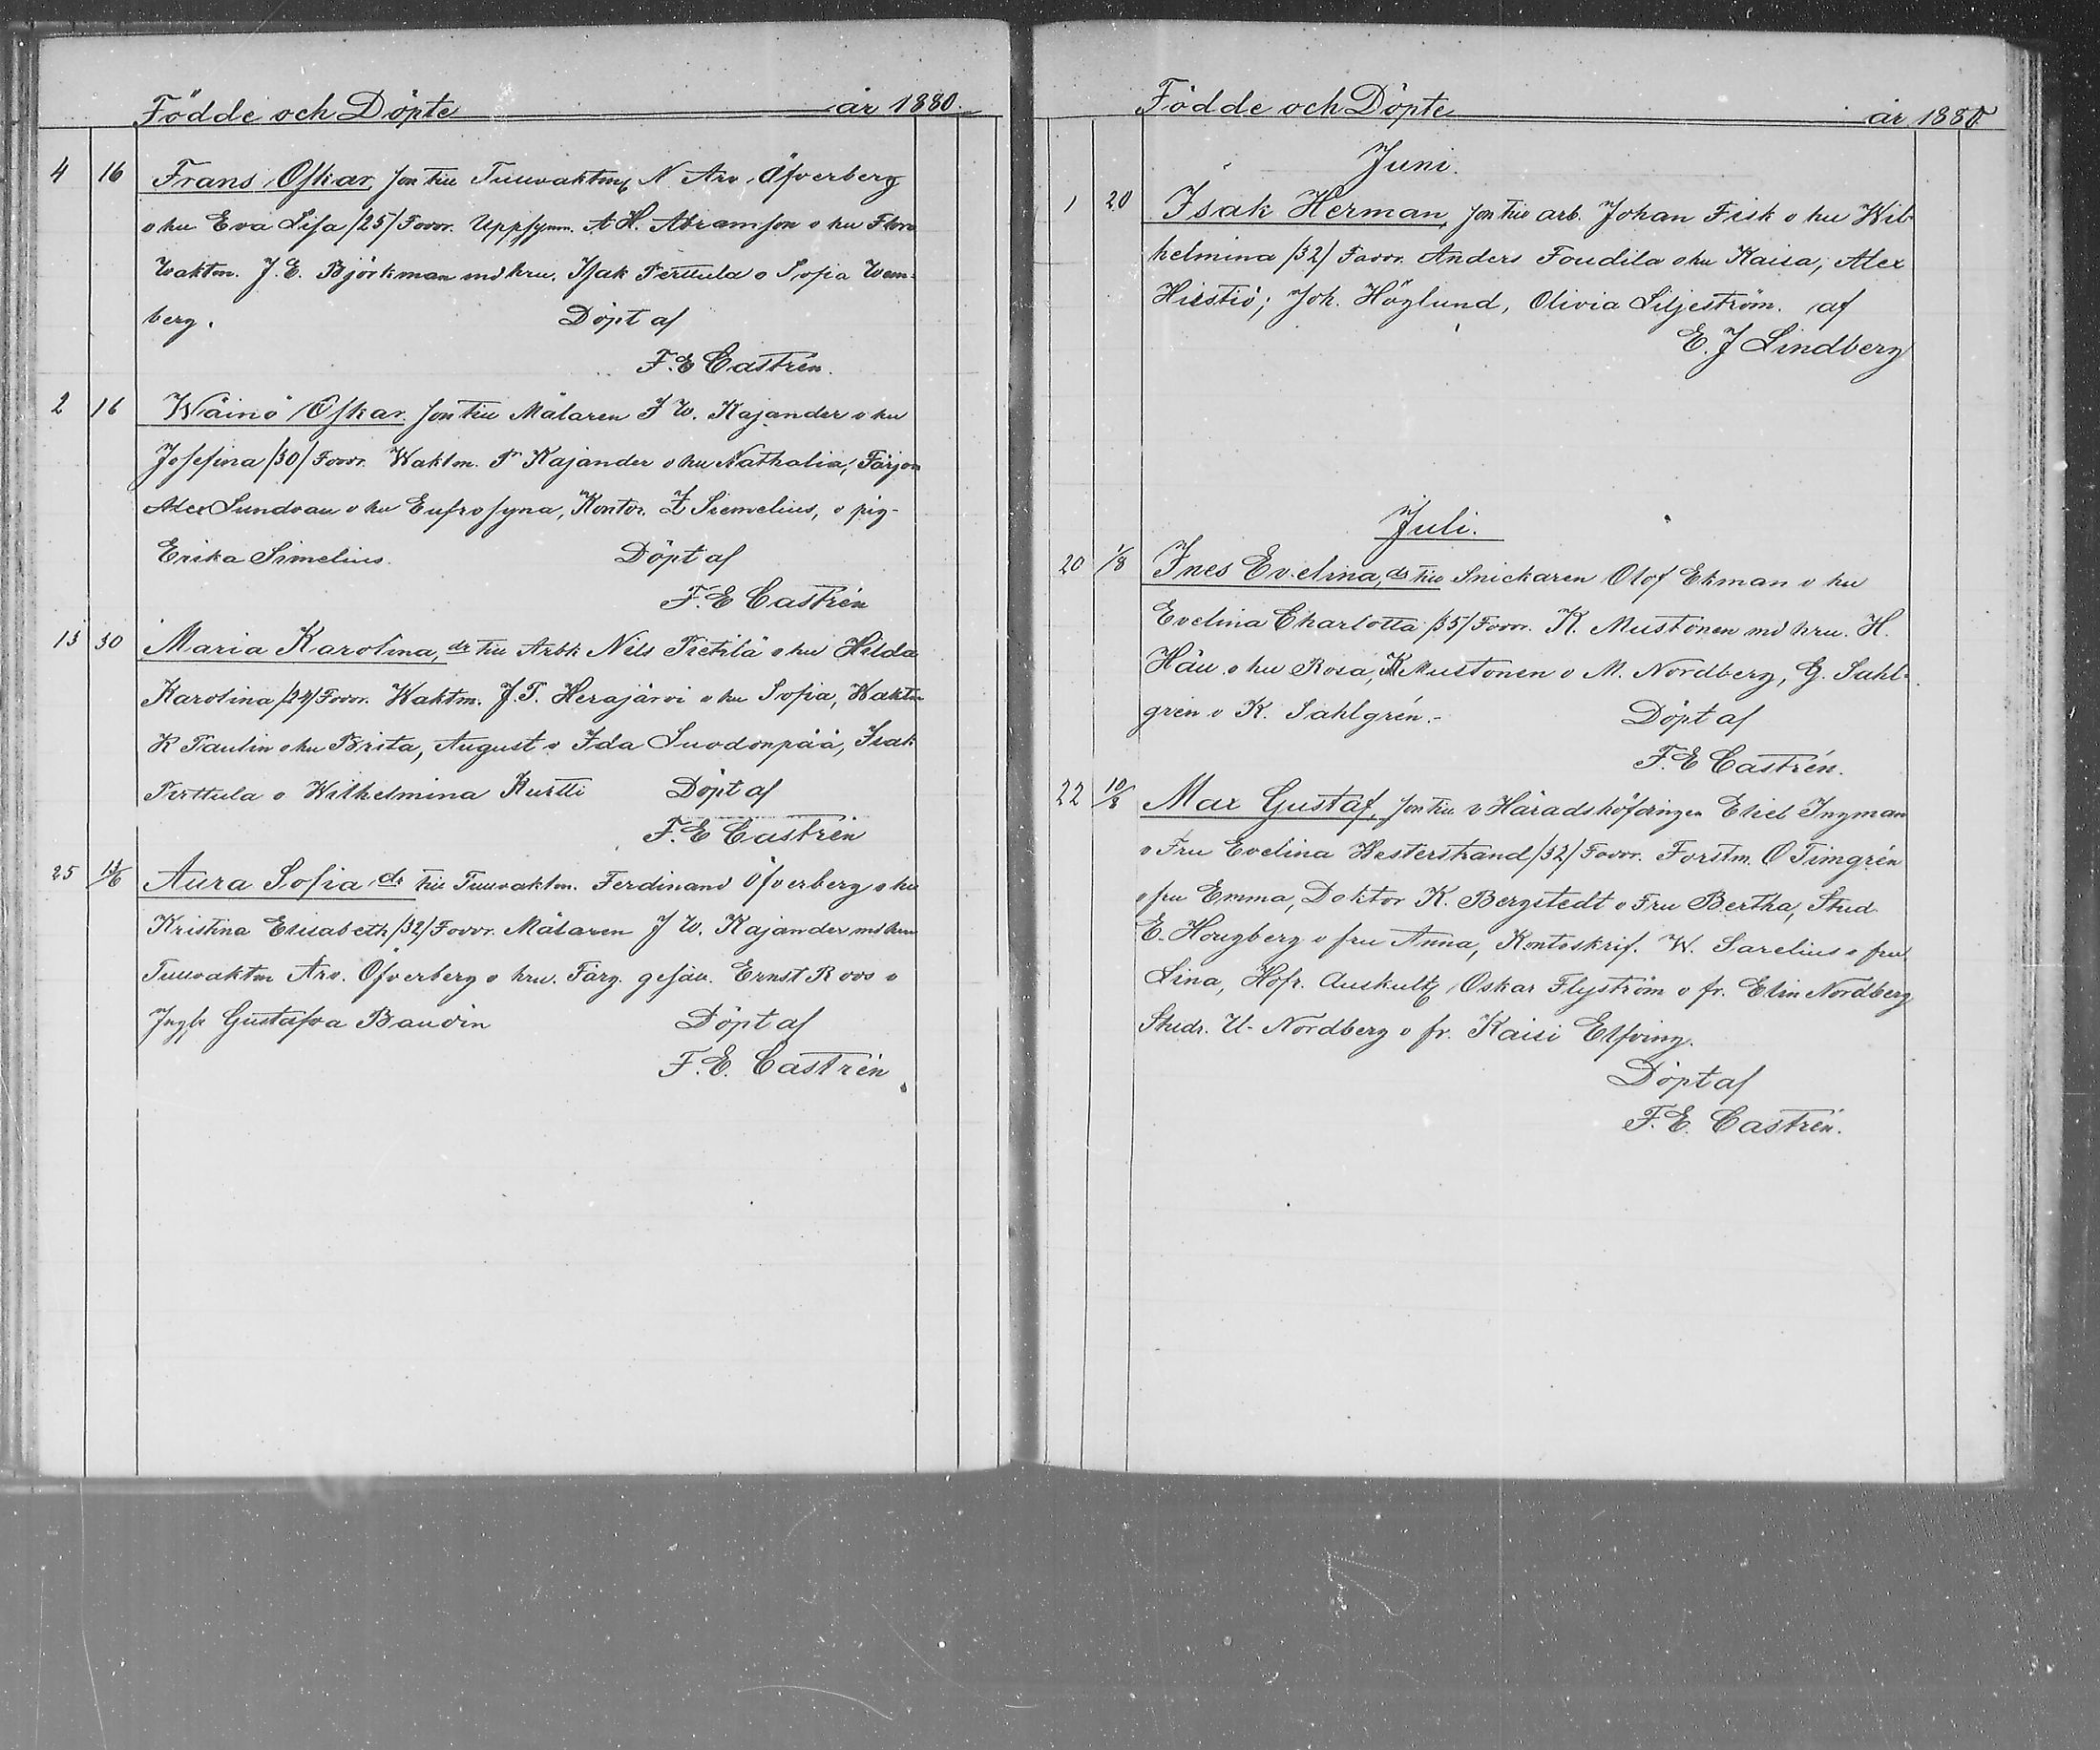 Födde och Döpte år 1880.
4 16 Frans Oskar, son till Tullvaktm. N. Arv. Öfverberg
o hu Eva Lisa /25/ Fovr. Uppsynm. A H. Abramson o hu Flora
Vaktm. J. E. Björkman md hru. Isak Perttula o Sofia Wem-
berg. Döpt af
F. E Castrén.
2 16 Wäinö Oskar son till Målaren J W. Kajander o hu
Josefina /30/ Fovr. Waktm. P. Kajander o hu Nathalia, Färjon
Alex Sundvall o hu Eufrosyna, Kontor. Z Simelius, o pig-
Erika Simelius. Döpt af
F. E Castrén
13 30 Maria Karolina, dr till Arbk Nils Pietilä o hu Hilda
Karolina /24/ Fovr. Waktm. J. P. Herajärvi o hu Sofia, Waktm
K Paulin o hu Brita, August o Ida Suvdonpää, Isak
Perttula o Wilhelmina Kurtti Döpt af
F. E Castrén
25 13/6 Aura Sofia dr till Tullvaktm. Ferdinand Öfverberg o hu
Kristina Elisabeth /32/ Fovr. Målaren J W. Kajander md hru
Tullvaktm Arv. Öfverberg o hru. Färg. gesäll. Ernst Roos o
Jngfr Gustafva Baudin Döpt af
F. E. Castrén
Födde och Döpte år 1880
Juni.
1 20 Isak Herman, son till arb. Johan Fisk o hu Wil-
helmina /32/ Fovr. Anders Foudila o hu Kaisa, Alex
Hiestiö; Joh. Höglund, Olivia Liljeström. af
E. J Lindberg
Juli.
20 1/8 Ines Evelina, dr till Snickaren Olof Ekman o hu
Evelina Charlotta /35/ Fovr. K. Mustonen md hru. H.
Häll o hu Rosa, K Mustonen o M. Nordberg, G. Sahl-
grén o K. Sahlgrén.- Döpt af
F. E Castrén.
22 10/8 Max Gustaf, son till v Häradshöfdingen Eliel Ingman
o Fru Evelina Westerstrand /32/ Fovr. Forstm. O Timgrén
o fru Emma, Doktor K. Bergstedt o Fru Bertha, Stud.
E. Hougberg o fru Anna, Kontoskrif. W. Sarelius o fru
Lina, Hofr. Auskult. Oskar Flyström o fr. Elin Nordberg
Studr. U. Nordberg o fr. Kaisi Elfving.
Döpt af
F. E. Castrén.